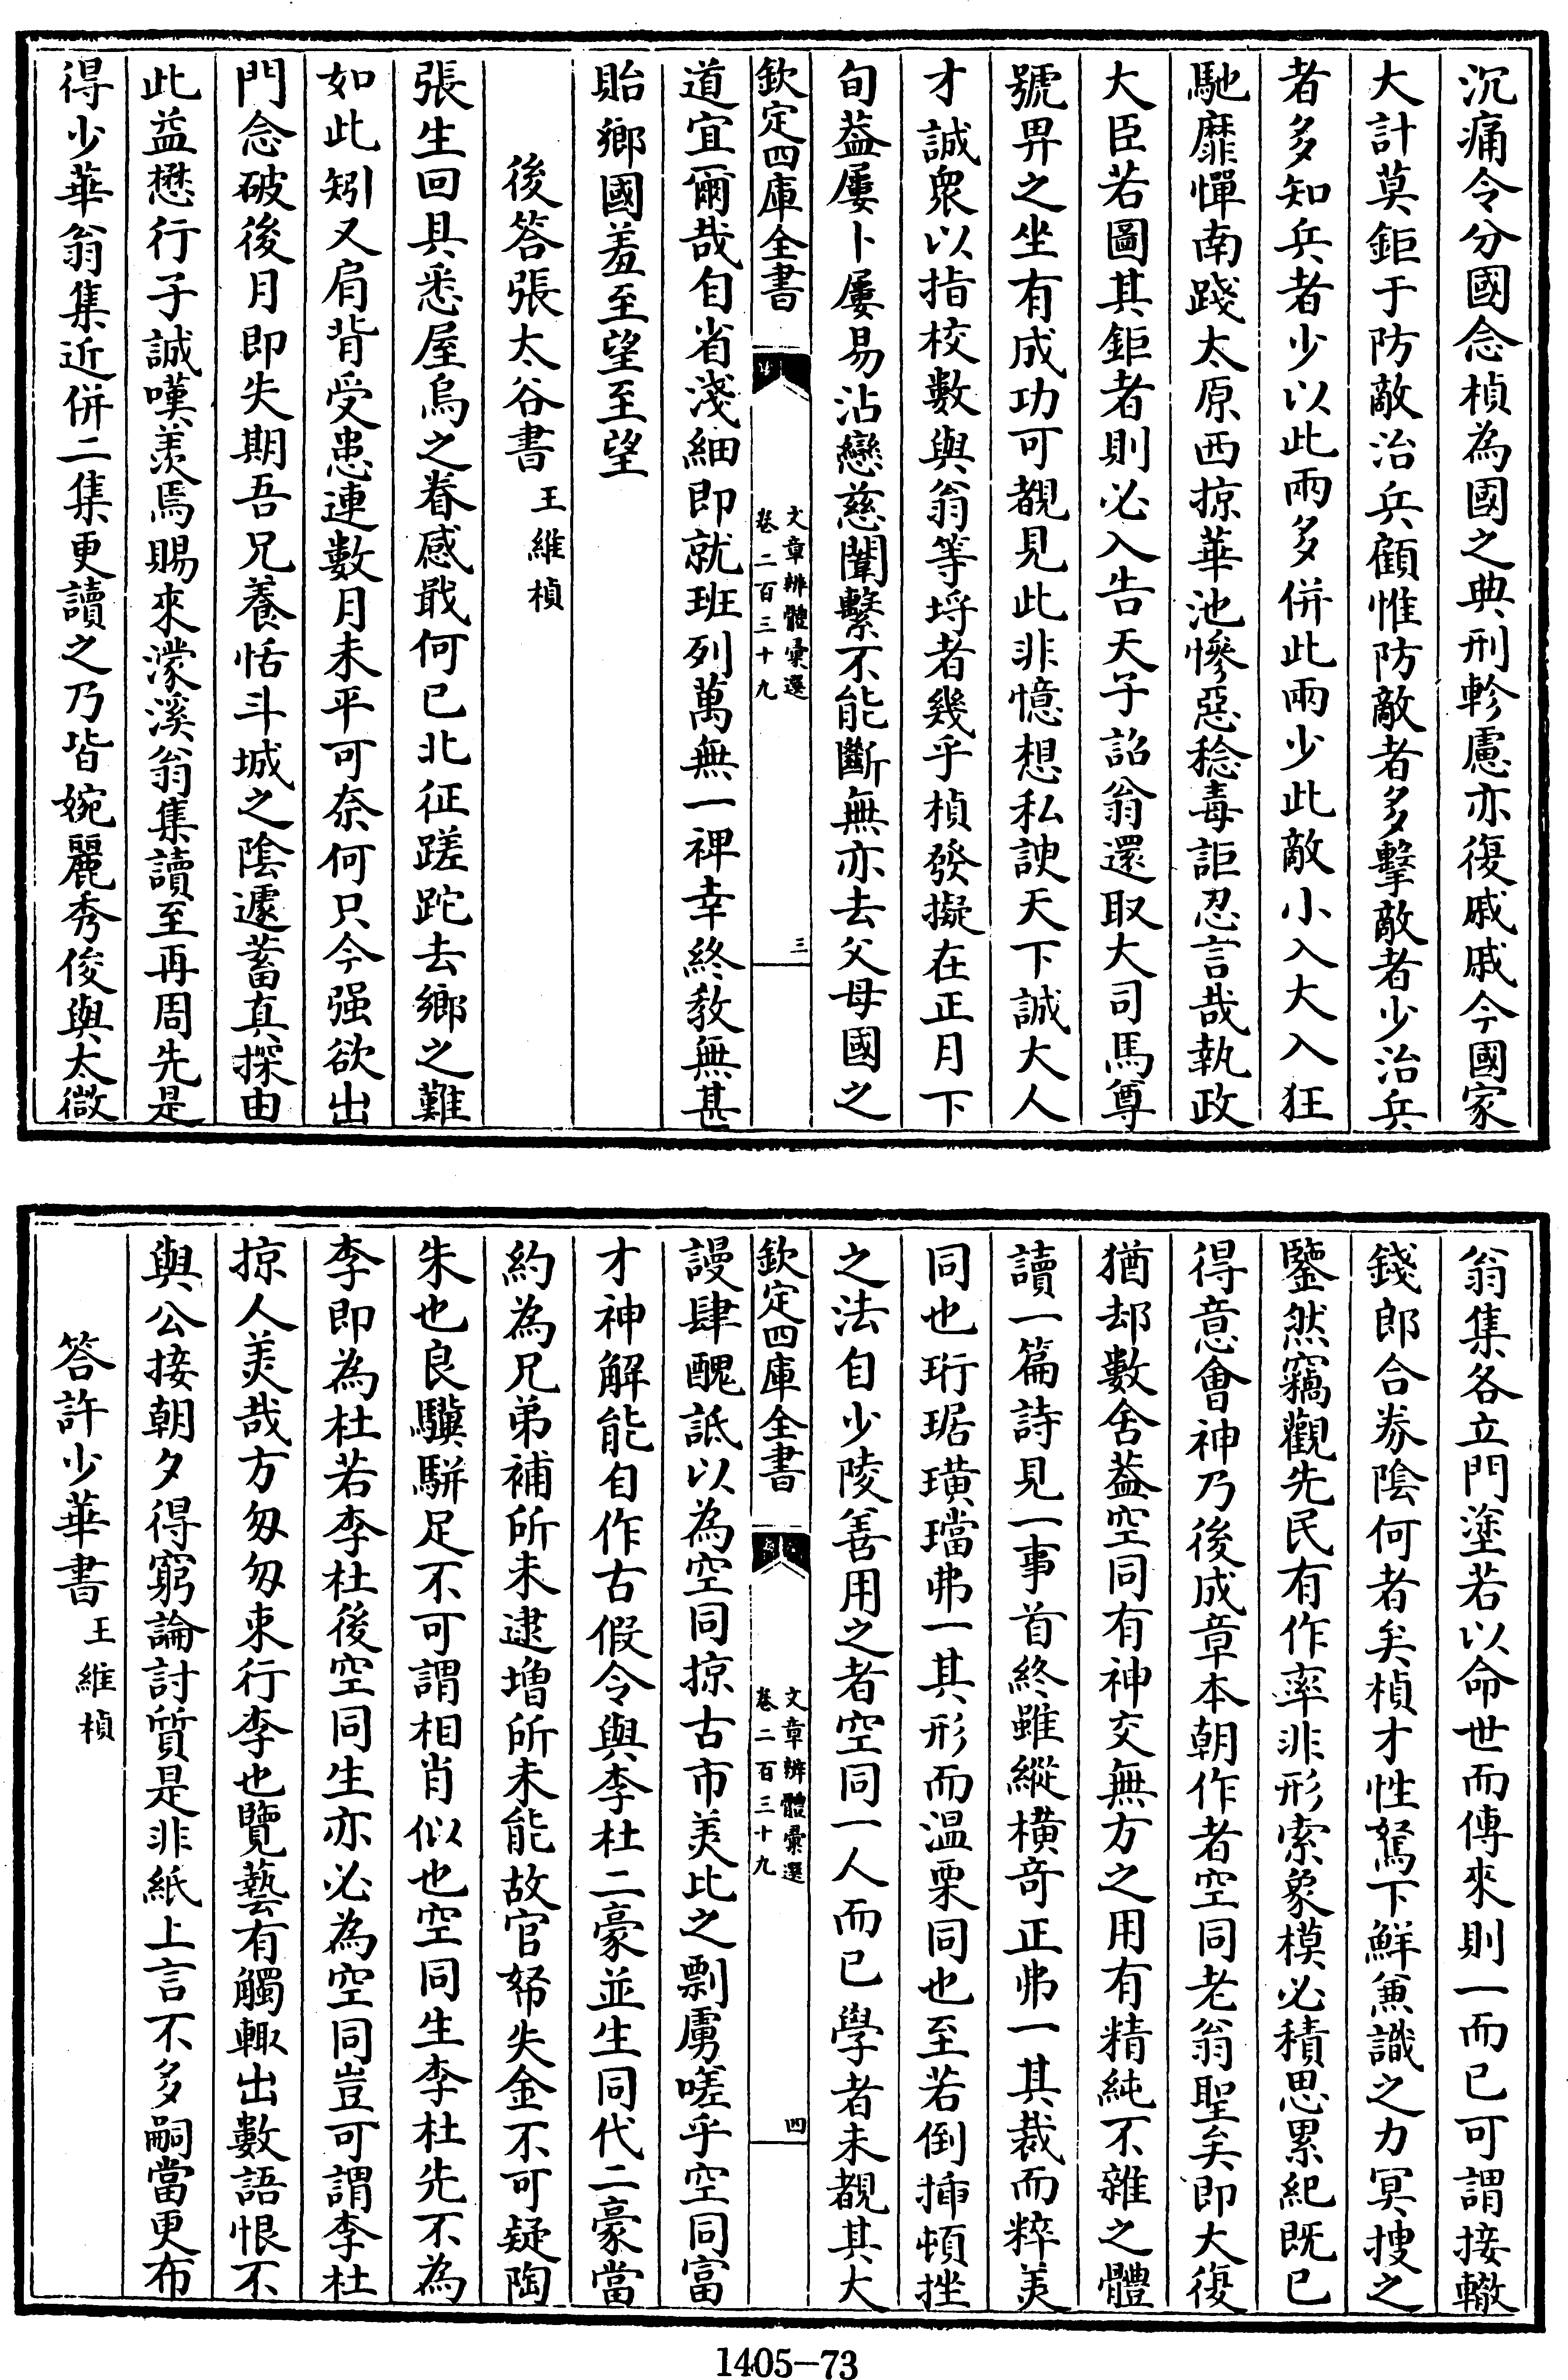 沉痛令分國念楨為國之典刑軫慮亦復戚戚今國家
大計莫鉅于防敵治兵顧惟防敵者多擊敵者少治兵
者多知兵者少以此兩多併此兩少此敵小入大入狂
馳靡憚南踐太原西掠華池慘惡稔毒詎忍言哉執政
大臣若圖其鉅者則必入告天子詔翁還取大司馬尊
號畀之坐有成功可覩見此非憶想私諛天下誠大人
才誠衆以指校數與翁等埒者幾乎楨發擬在正月下
旬葢屢卜屢易沾戀慈闈繫不能斷無亦去父母國之
欽定四庫全書
文章辨體彙選
卷二百三十九
三
道宜爾哉自省淺細即就班列萬無一裨幸終教無甚
貽鄉國羞至望至望
後答張太谷書王維楨
張生回具悉屋烏之眷感戢何已北征蹉跎去鄉之難
如此矧又肩背受患連數月未平可奈何只今强欲出
門念破後月即失期吾兄養恬斗城之陰遽蓄真探由
此益懋行子誠嘆羨焉賜來濛溪翁集讀至再周先是
得少華翁集近併二集更讀之乃皆婉麗秀俊與太微
翁集各立門塗若以命世而傳來則一而已可謂接轍
錢郎合券陰何者矣楨才性駑下鮮兼識之力冥搜之
鑒然竊觀先民有作率非形索象模必積思累紀既已
得意會神乃後成章本朝作者空同老翁聖矣即大復
猶却數舍葢空同有神交無方之用有精純不雜之體
讀一篇詩見一事首終雖縱橫奇正弗一其裁而粹美
同也珩琚璜璫弗一其形而温栗同也至若倒插頓挫
之法自少陵善用之者空同一人而已學者未覩其大
欽定四庫全書
文章辨體彙選
卷二百三十九
四
謾肆醜詆以為空同掠古市美比之剽虜嗟乎空同富
才神解能自作古假令與李杜二豪並生同代二豪當
約為兄弟補所未逮增所未能故官帑失金不可疑陶
朱也良驥駢足不可謂相肖似也空同生李杜先不為
李即為杜若李杜後空同生亦必為空同豈可謂李杜
掠人美哉方匆匆束行李也覽藝有觸輙出數語恨不
與公接朝夕得窮論討質是非紙上言不多嗣當更布
答許少華書王維楨
1405-73